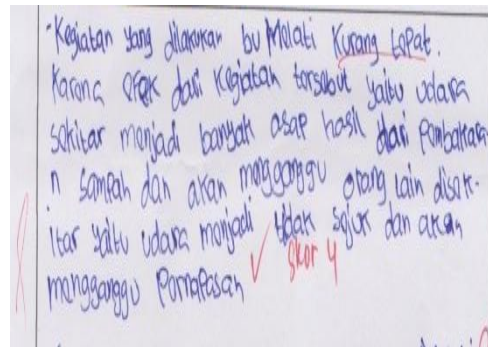 - Kegiatan yang dilakukan bu Melati Kurang tepat.
Karena efek dari Kegiatan tersebut yaitu udara
sekitar menjadi banyak asap hasil dari Pembakara
n sampah dan akan mengganggu orang lain disek-
itar yaitu udara menjadi tidak sejuk dan akan
mengganggu Pernapasan ✓ skor 4